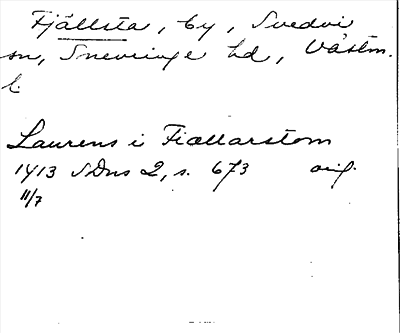 Fjällsta, by, Svedvi
sn, Snevringe hd, Västm.
l.
Laurens i Fiællarstom
1413 SDns 2, s. 673 orig.
11/7